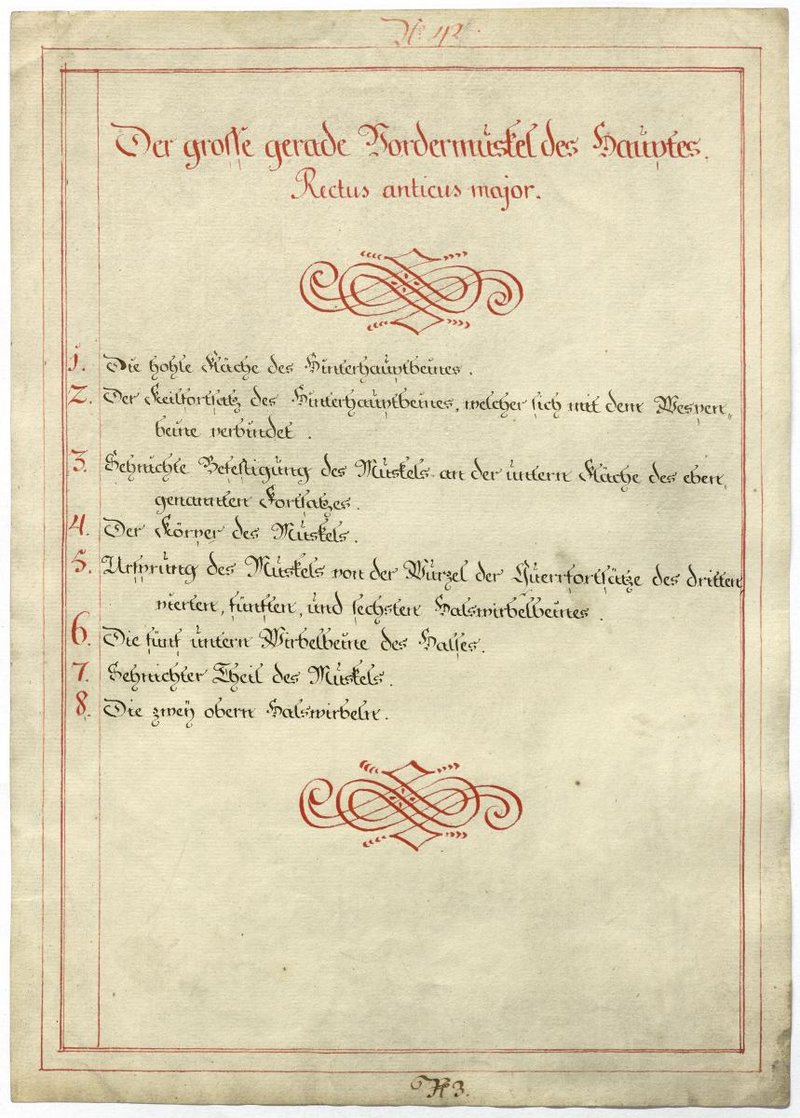 № 42.
Der grosse gerade Vordermuskel des Hauptes.
Rectus anticus major.
1. Die hohle Fläche des Hinterhauptbeines.
2. Der Keilfortsatz des Hinterhauptbeines, welcher sich mit dem Wespen„
beine verbindet.
3. Sehnichte Befestigung des Muskels an der untern Fläche des eben„
genannten Fortsatzes.
4. Der Körper des Muskels.
5. Ursprung des Muskels von der Wurzel der Querrfortsätze des dritten
vierten, fünften, und sechsten Halswirbelbeines.
6. Die fünf untern Wirbelbeine des Halses.
7. Sehnichter Theil des Muskels.
8. Die zwey obern Halswirbeln.
№ 3.